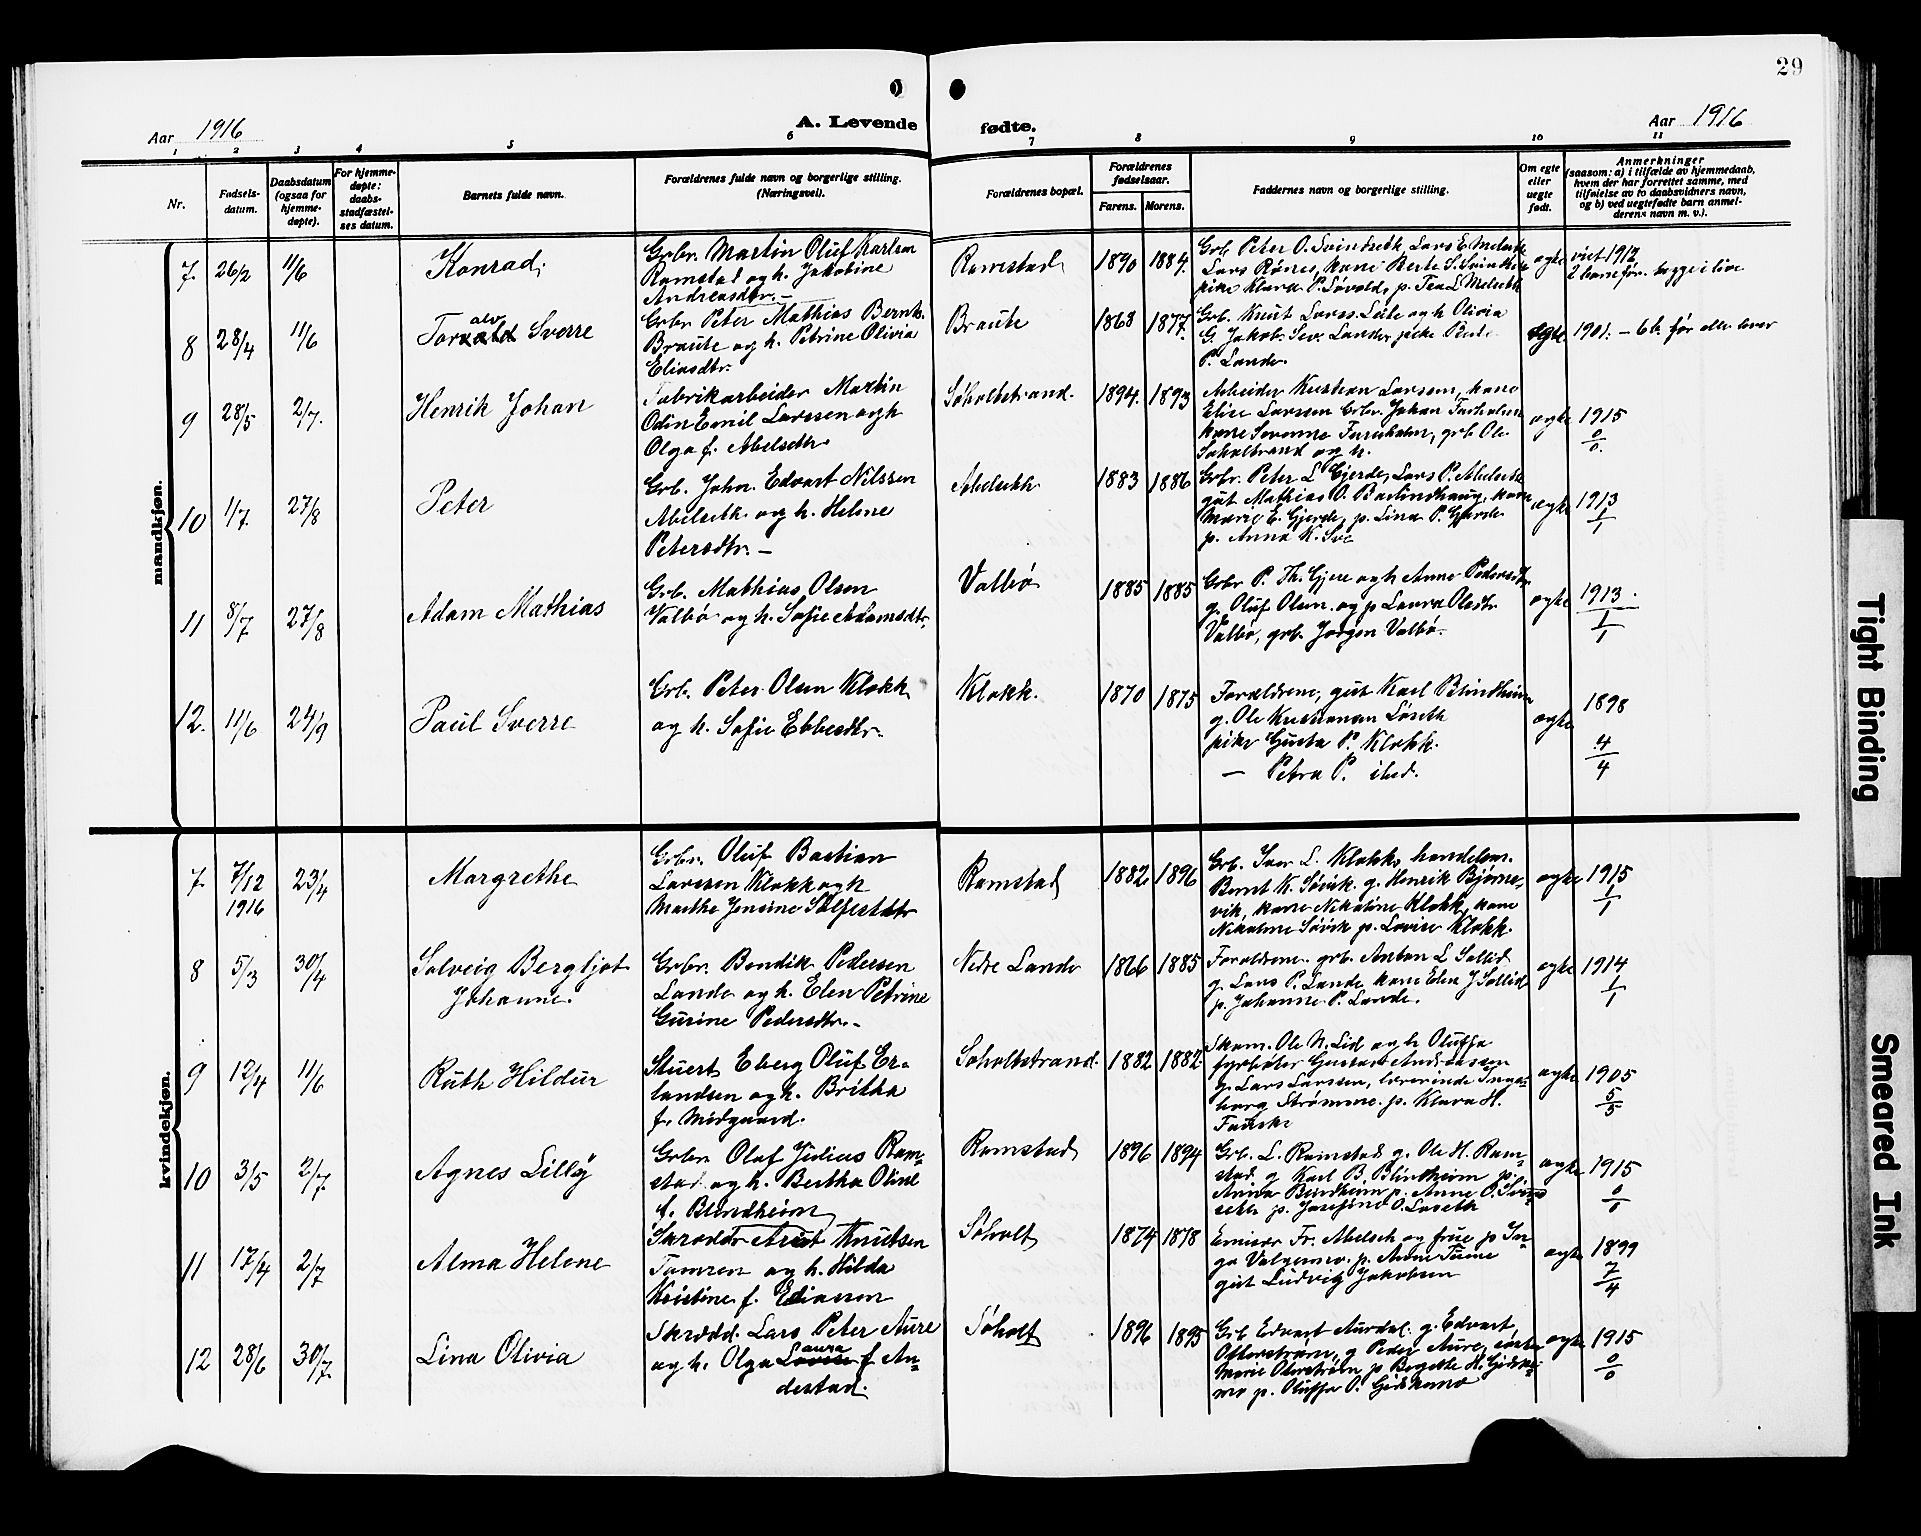 29
Aar 1916
A. Levende fødte.
Aar 1916
1 2 3 4 5 6 7 8 9 10 11
Nr.
Fødsels-
datum.
Daabsdatum
(ogsaa for
hjemme-
døpte).
For hjemme-
døpte:
daabs-
stadfæstel-
ses datum.
Barnets fulde navn.
Forældrenes fulde navn og borgerlige stilling.
(Næringsvei).
Forældrenes bopæl.
Forældrenes
fødselsaar.
Farens. Morens.
Faddernes navn og borgerlige stilling.
Om egte
eller
uegte
født.
Anmerkninger
(saasom: a) i tilfælde av hjemmedaab,
hvem der har forrettet samme, med
tilføielse av to daabsvidners navn,
og b) ved uegtefødte barn anmel-
derens navn m. v.).
mandkjøn.
7. 26/2 11/6
Konrad.
Grbr. Martin Oluf Karlsen
Ramstad og h. Jakobine
Andreasdtr. —
Ramstad
1890 1884.
Grb. Peter O. Svindseth, Lars E. Melseth
Lars Rönes, kone Berte S. Svindseth
pike Klara P. Søvold, p. Tea L Melseth
egte
viet 1912
2 barn før. begge i live
8 28/4 11/6
Torvald alv Sverre
Grbr. Peter Mathias Bernh.
Braute og h. Petrine Olivia
Eliasdtr.
Braute
1868 1877.
Grb. Knut Larss. Leite og h Olivia
G. Jakob. Sev. Lande, pike Berte
P. Lande.
egte
1901. — 6 b. før alle lever
9 28/5 2/7.
Henrik Johan
Fabrikarbeider Martin
Odin Emil Larssen og h
Olga f. Abelseth
Søholtstrand.
1894. 1893
Arbeider Kristian Larssen, kone
Elise Larssen Grbr. Johan Fureholm
kone Severine Fureholm, grb Ole
Søholtstrand og h.
egte
1915
0/0.
10 1/7. 27/8
Peter
Grb. John. Edvart Nilssen
Abelseth og h. Helene
Petersdtr. —
Abelseth
1883 1886
Grbr. Peter L Gjerde, Lars P. Abelseth
gut Mathias O. Barlindhaug, kone
Marie E. Gjerde, p. Lina P. Gjerde
p. Anna K. Sve
egte
1913
1/1
11 8/7 27/8
Adam Mathias
Grb. Mathias Olsen
Valbø og h. Sofie Adamsdtr.
Valbø
1885 1885
Grbr P. Th. Gjere og h Anne Pedersdtr
g. Oluf Olsen. og p Laura Olsdtr.
Valbø, grb. Jørgen Valbø.
egte
1913.
1/1
12. 11/6 24/9
Paul Sverre
Grb. Peter Olsen Klokk
og h. Sofie Ebbesdtr.
Klokk.
1870 1875
Forældrene, gut Karl Blindheim
g. Ole Kristiansen Løseth
pike Gusta P. Klokk.
— Petra P. ibid.
egte
1898
4/4
kvindekjøn.
7. 7/12 1916 23/4
Margrethe
Grbr. Oluf Bastian
Larssen Klokk og h
Marthe Jensine
Ramstad
1882 1896
Grb. Iver L. Klokk, handelsm.
Bernt K. Søvik. g. Henrik Bjørne-
vik, kone Nikoline Klokk, kone
Nikoline Søvik p. Lovise Klokk.
egte
1915
1/1
8 5/3 30/4
Solveig Bergljot
Johanne.
Grbr. Bendik Pedersen
Lande og h. Elen Petrine
Gurine Pedersdtr. —
Nedre Lande
1866 1885
Forældrene. grb. Anton L Sollid
g. Lars P. Lande, kone Elen J Sollid
p. Johanne P. Lande.
egte
1914
1/1
9 12/4 11/6
Ruth Hildur
Stuert Eberg Oluf Er-
landsen og h. Britha
f. Midgaard.
Søholtstrand.
1882 1882.
Skom. Ole N. Lid og h Oluffa
fyrbøter Gustav Andreassen
g. Lars Larssen, lærerinde Inge-
borg Strømme. p. Klara H.
Fauske
egte
1905
5/5
10 3/5 2/7.
Agnes Lilly
Grbr. Olaf Julius Ram-
stad og h. Bertha Oline
f. Blindheim
Ramstad
1896 1894
Grb. L. Ramstad g. Ole H. Ram-
stad g Karl B. Blindheim p.
Anna Blindheim p. Anne O. Svind-
seth p. Josefine O. Løseth
egte
1915
0/0
11 17/4 2/7
Alma Helene
Skrædder Knut Knutsen
Tomren og h. Hilda
Kristine f. Eliassen
Søholt
1874 1878
Emissær Fr. Abelseth og frue p In-
ga Valgermo. p. Anne Tume
gut Ludvig Jakobsen
egte
1899
7/4
12 28/6 30/7.
Lina Olivia
Skrædd. Lars Peter Aure
og h. Olga Lovise aura f. An-
destad.
Søholt
1896 1895
Grb Edvart Aurdal. g. Edvart
Otterstrøm, g Peder Aure,
Marie Oterstrøm, p Bergitte H. Gjeska-
mo p. Oluffa O. Gjeskamo
egte
1915
0/0
Tight Binding
Smeared Ink